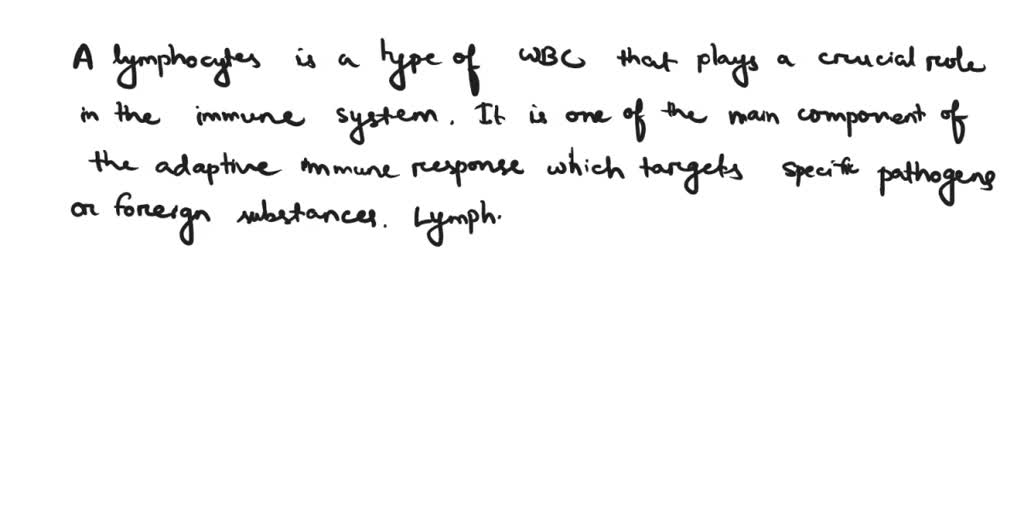 A lymphocytes is a type of WBC that plays a crucial role
in the immune system. It is one of the main component of
the adaptive immune response which targets specific pathogens
or foreign substances. Lymph.